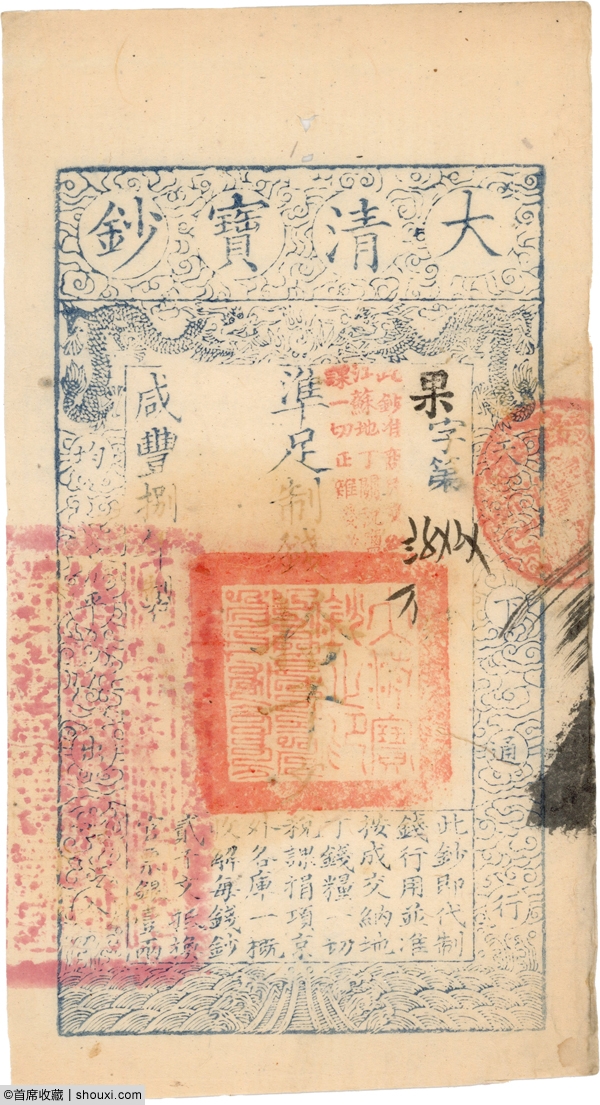 大清寶鈔
天下通行
果字第
江蘇地丁關稅
課一切正雜
準足制錢
咸豐捌年製
均平出入
此鈔即代制
錢行用並准
按成交納地
丁錢糧一切
稅課捐項京
外各庫一概
收解每錢鈔
貳千文抵換
官票銀壹兩
©首席收藏 | shouxi.com